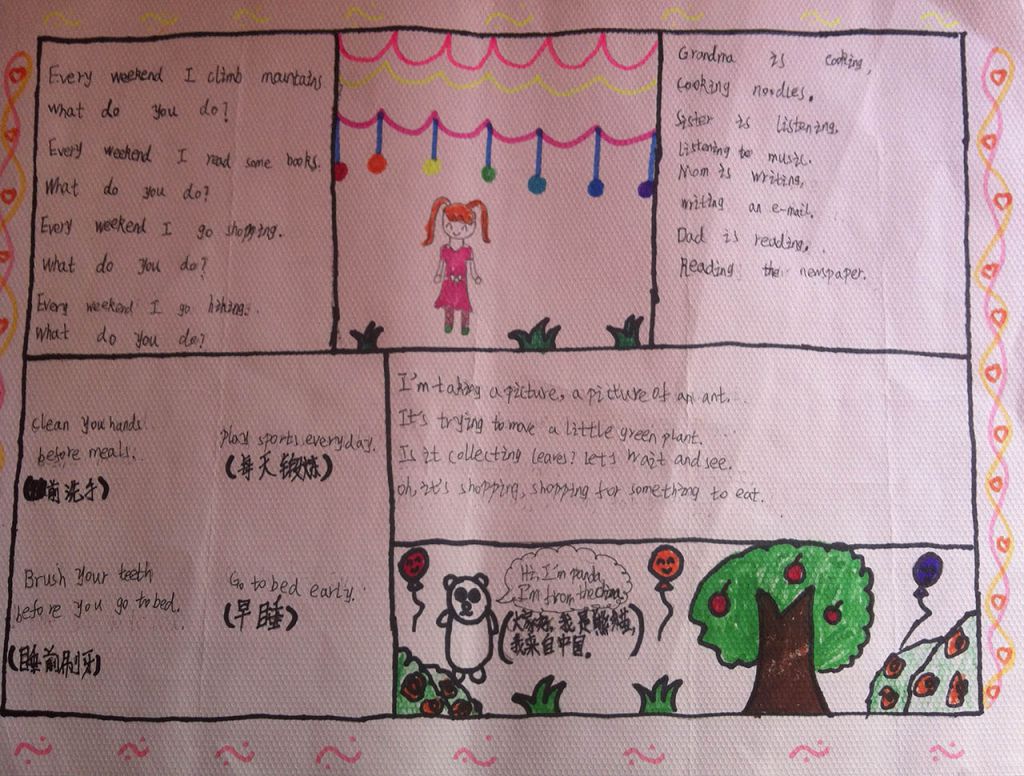 Every weekend I climb mountains
What do you do?
Every weekend I read some books.
What do you do?
Every weekend I go shopping.
What do you do?
Every weekend I go hiking.
What do you do?
Grandma is cooking,
cooking noodles.
Sister is listening.
Listening to music.
Mom is writing,
writing an e-mail.
Dad is reading,
Reading the newspaper.
Clean you hands
before meals.
(前洗手)
Play sports everyday.
(每天锻炼)
Brush your teeth
before you go to bed.
(睡前刷牙)
Go to bed early.
(早睡)
I'm taking a picture, a picture of an ant.
It's trying to move a little green plant.
Is it collecting leaves? Let's wait and see.
Oh, it's shopping, shopping for something to eat.
Hi, I'm panda,
I'm from the china,
(大家好,我是熊猫,
我来自中国。)